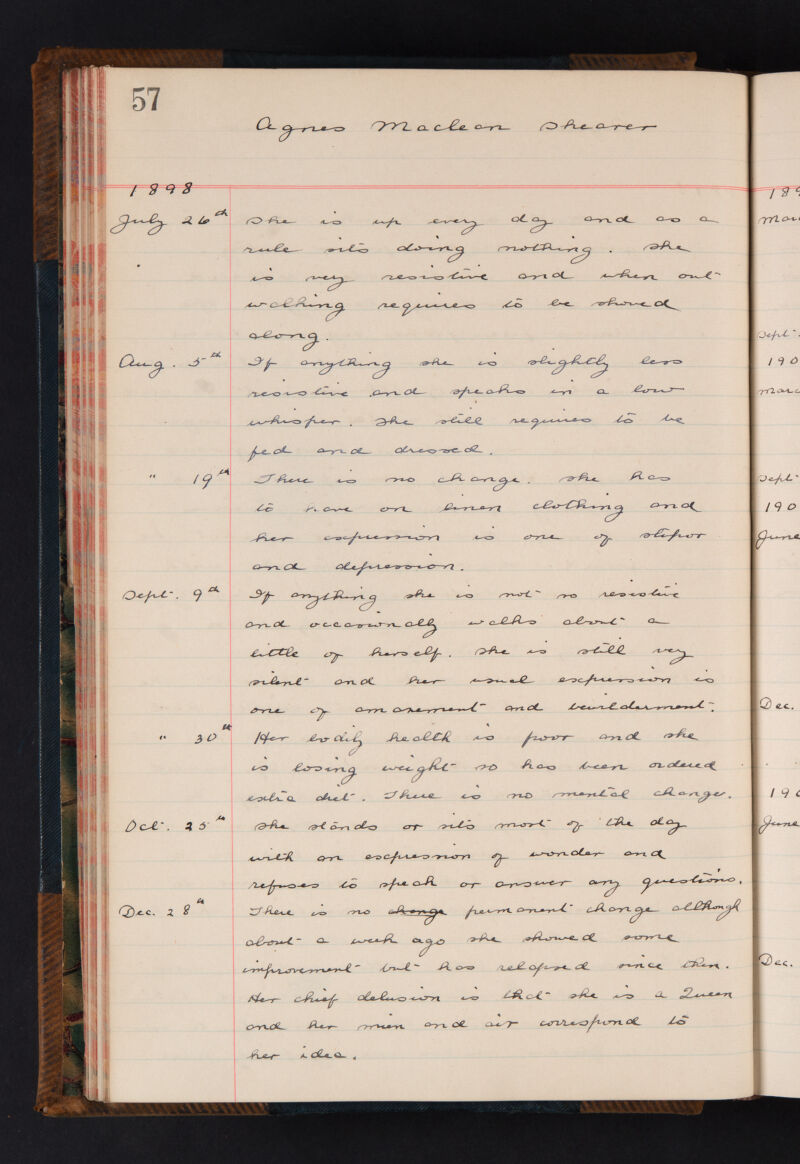 57
Agnes Maclean Shearer
1898
July 26th She is up every day and as a
rule sits doing nothing. She
is very resistive and when out
walking requires to be shoved
along.
Aug. 5th If anything she is slightly less
resistive and speaks in a low
whisper. She still requires to be
fed and dressed.
" 19th There is no change. She has
to have on linen clothing and
her expression is one of stupor
and depression.
Sept. 9th If anything she is not so resistive
and occasionally walks about a
little of herself. She is still very
silent and her usual expression is
one of amazement and bewilderment.
" 30th Her bodily health is poor and she
is losing weight so has been ordered
extra diet. There is no mental change.
Oct. 25th She stands or sits most of the day
with an expression of wonder and
refuses to speak or answer any questions.
Dec. 28th There is no change permanent change although
about a week ago she showed some
improvement but has relapsed since then.
Her chief delusion is that she is a Queen
and her mien and air correspond to
her idea.
189
Mar
Sept.
190
Marc
Sept.
190
June
Dec.
190
June
Dec.